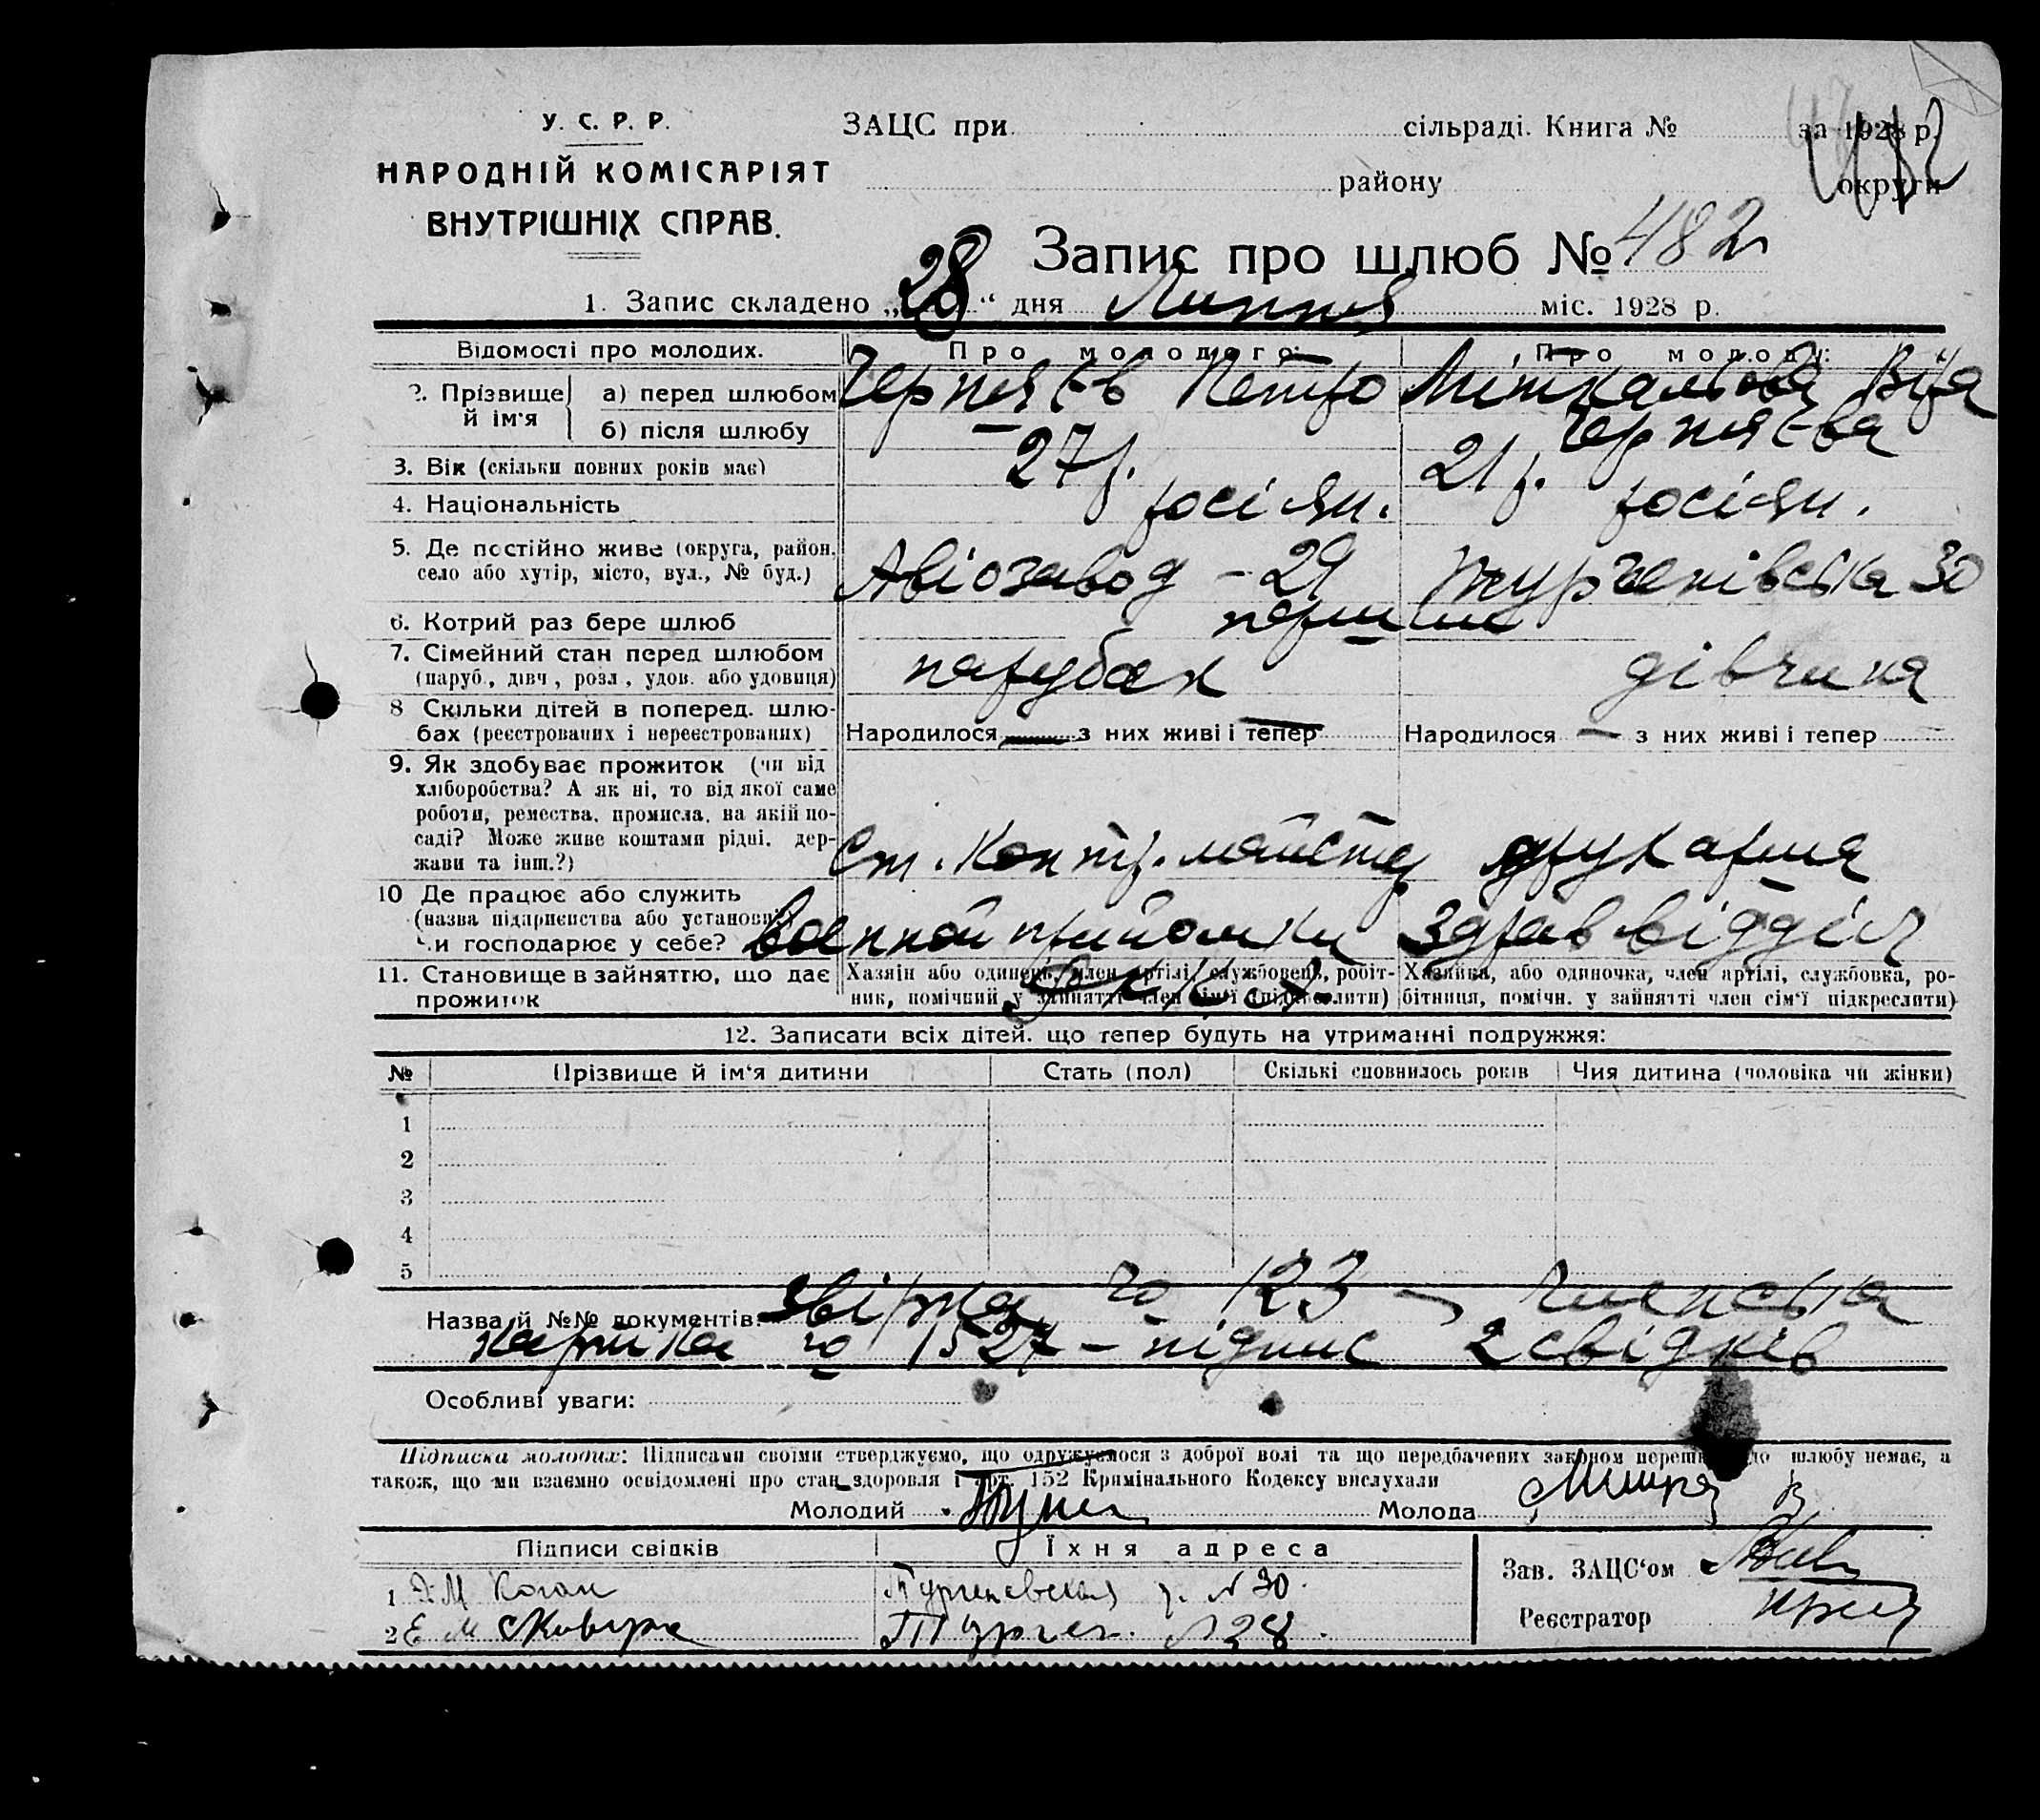 У. С. Р. Р.
НАРОДНІЙ КОМІСАРІЯТ
ВНУТРІШНІХ СПРАВ.
ЗАЦС при сільраді. Книга № за 1928 р.
району округи
Запис про шлюб № 482
1. Запис складено „28“ дня Липня міс. 1928 р.
Відомості про молодих. Про молодого: Про молоду:
2. Прізвище й ім'я а) перед шлюбом Черняєв Петро Віра
б) після шлюбу Черняєва
3. Вік (скільки повних років має) 27 р. 21 р.
4. Національність росіян. росіян.
5. Де постійно живе (округа, район, село або хутір, місто, вул., № буд.) Авіозавод - 29 Тургенівська 30
6. Котрий раз бере шлюб перший
7. Сімейний стан перед шлюбом парубок дівчина
(паруб., дівч., розл., удов. або удовиця)
8 Скільки дітей в поперед. шлюбах (реєстрованих і нереєстрованих) Народилося — з них живі і тепер Народилося — з них живі і тепер
9. Як здобуває прожиток (чи від
хліборобства? А як ні, то від якої саме
роботи, ремества, промисла, на якій по-
саді? Може живе коштами рідні, дер-
жави та інш.?) Ст. Контр. майстер друкарня
10 Де працює або служить
(назва підприємства або установи)
чи господарює у себе? Военной прийомки Здраввідділ
11. Становище в зайняттю, що дає Хазяїн або одинець, член артілі, службовець, робіт- Хазяйка, або одиночка, член артілі, службовка, ро-
прожиток ник, помічний у зайнятті член сім'ї (підкреслити) бітниця, помічн. у зайнятті член сім'ї підкреслити)
12. Записати всіх дітей, що тепер будуть на утриманні подружжя:
№ Прізвище й ім'я дитини Стать (пол) Скількі сповнилось років Чия дитина (чоловіка чи жінки)
1
2
3
4
5
Назва й №№ документів: 123 - членська
картка 1527 - підпис 2 свідків
Особливі уваги:
Підписка молодих: Підписами своїми стверджуємо, що одружуємося з доброї волі та що передбачених законом перешкод до шлюбу немає, а
також, що ми взаємно освідомлені про стан здоровля і арт. 152 Кримінального Кодексу вислухали
Молодий Молода
Підписи свідків Їхня адреса
Зав. ЗАЦС'ом
1 Коган Тургеневская у. № 30.
2 Е М Тургеч. № 28.
Реєстратор